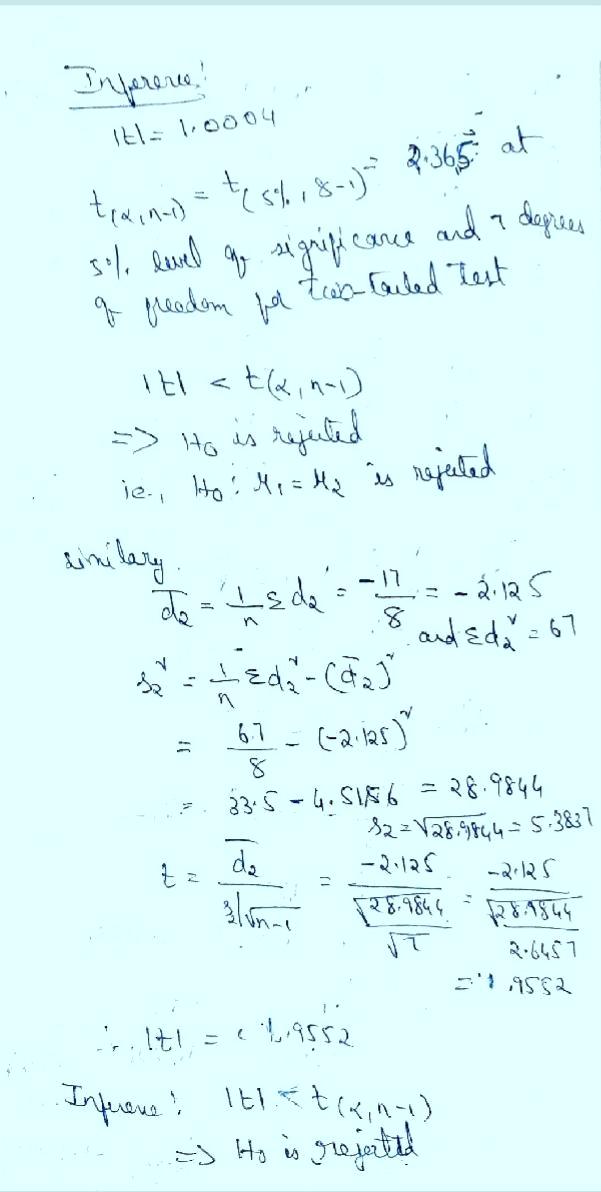 Inference!
|t| = 1.0004
t(α,n-1) = t(5%, 8-1) = 2.365 at
5% level of significance and 7 degrees
of freedom for two-tailed Test
|t| < t(α, n-1)
=> H₀ is rejected
ie., H₀: M₁ = M₂ is rejected
similary
d̄₂ = 1/n Σd₂ = -17/8 = -2.125
and Σd₂² = 67
s₂² = 1/n Σd₂² - (d̄₂)²
= 67/8 - (-2.125)²
= 33.5 - 4.5156 = 28.9844
s₂ = √28.9844 = 5.3837
t = d̄₂/(s/√n-1) = -2.125/(√28.9844/√7) = -2.125/(√28.9844/2.6457)
= 1.9552
∴ |t| = 1.9552
Inference! |t| < t(α,n-1)
=> H₀ is rejected